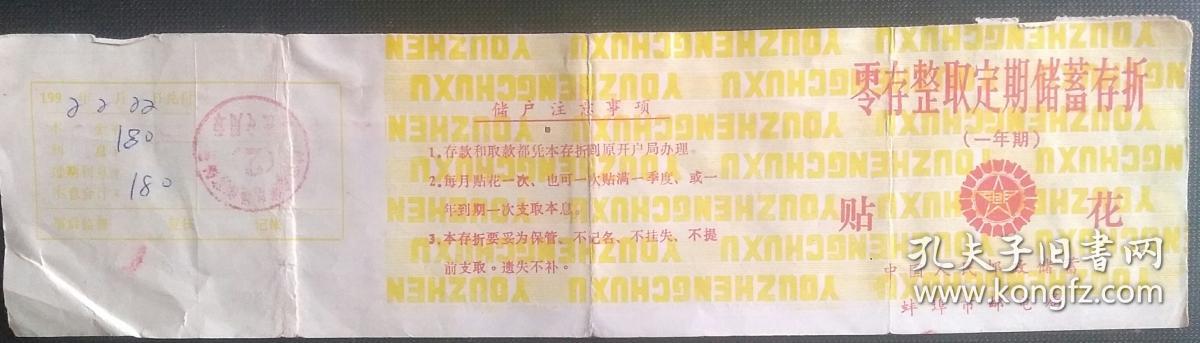 零存整取定期储蓄存折
(一年期)
贴 花
中国人民邮政储蓄
蚌埠市邮电局
储户注意事项
1.存款和取款都凭本存折到原开户局办理。
2.每月贴花一次、也可一次贴满一季度、或一
年到期一次支取本息。
3.本存折要妥为保管、不记名、不挂失、不提
前支取。遗失不补。
YOUZHENGCHUXU YOUZHENGCHUXU YOUZHEN
199
2 2 22
180
180
孔夫子旧书网
www.kongfz.com